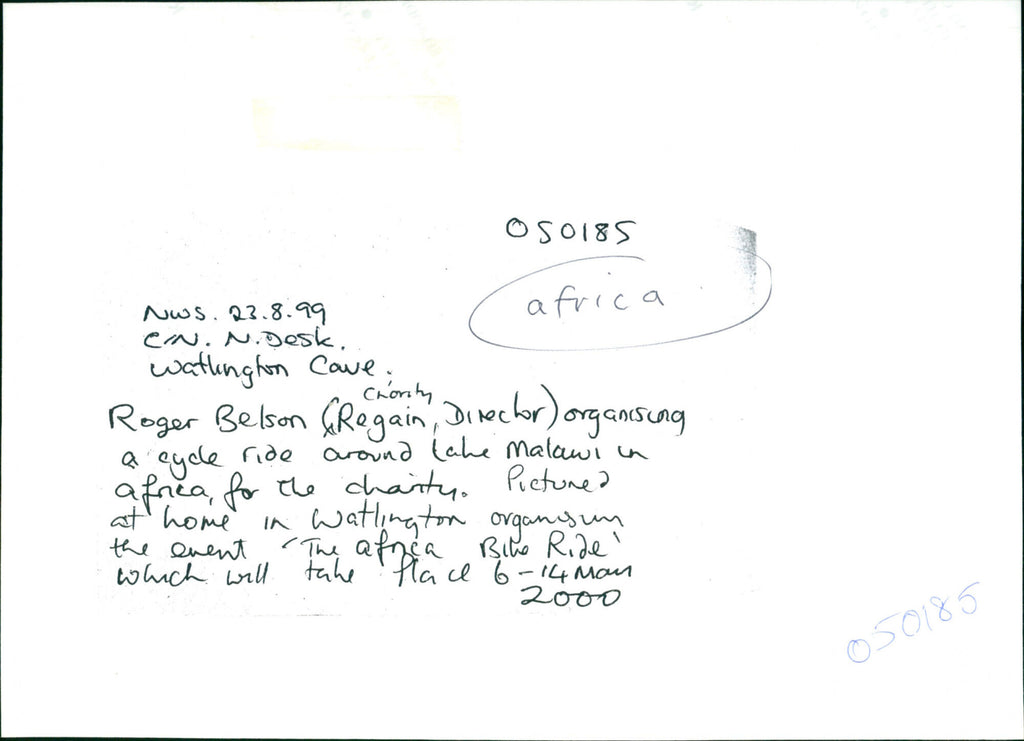 050185
africa
NWS. 23.8.99
C/N. N. Desk.
Watlington
Charity
Roger Belson (Regain, Director) organising
a cycle ride around Lake Malawi in
africa, for the charity. Pictured
at home in Watlington organising
the event 'The africa Bike Ride'
which will take place 6-14 May
2000
050185